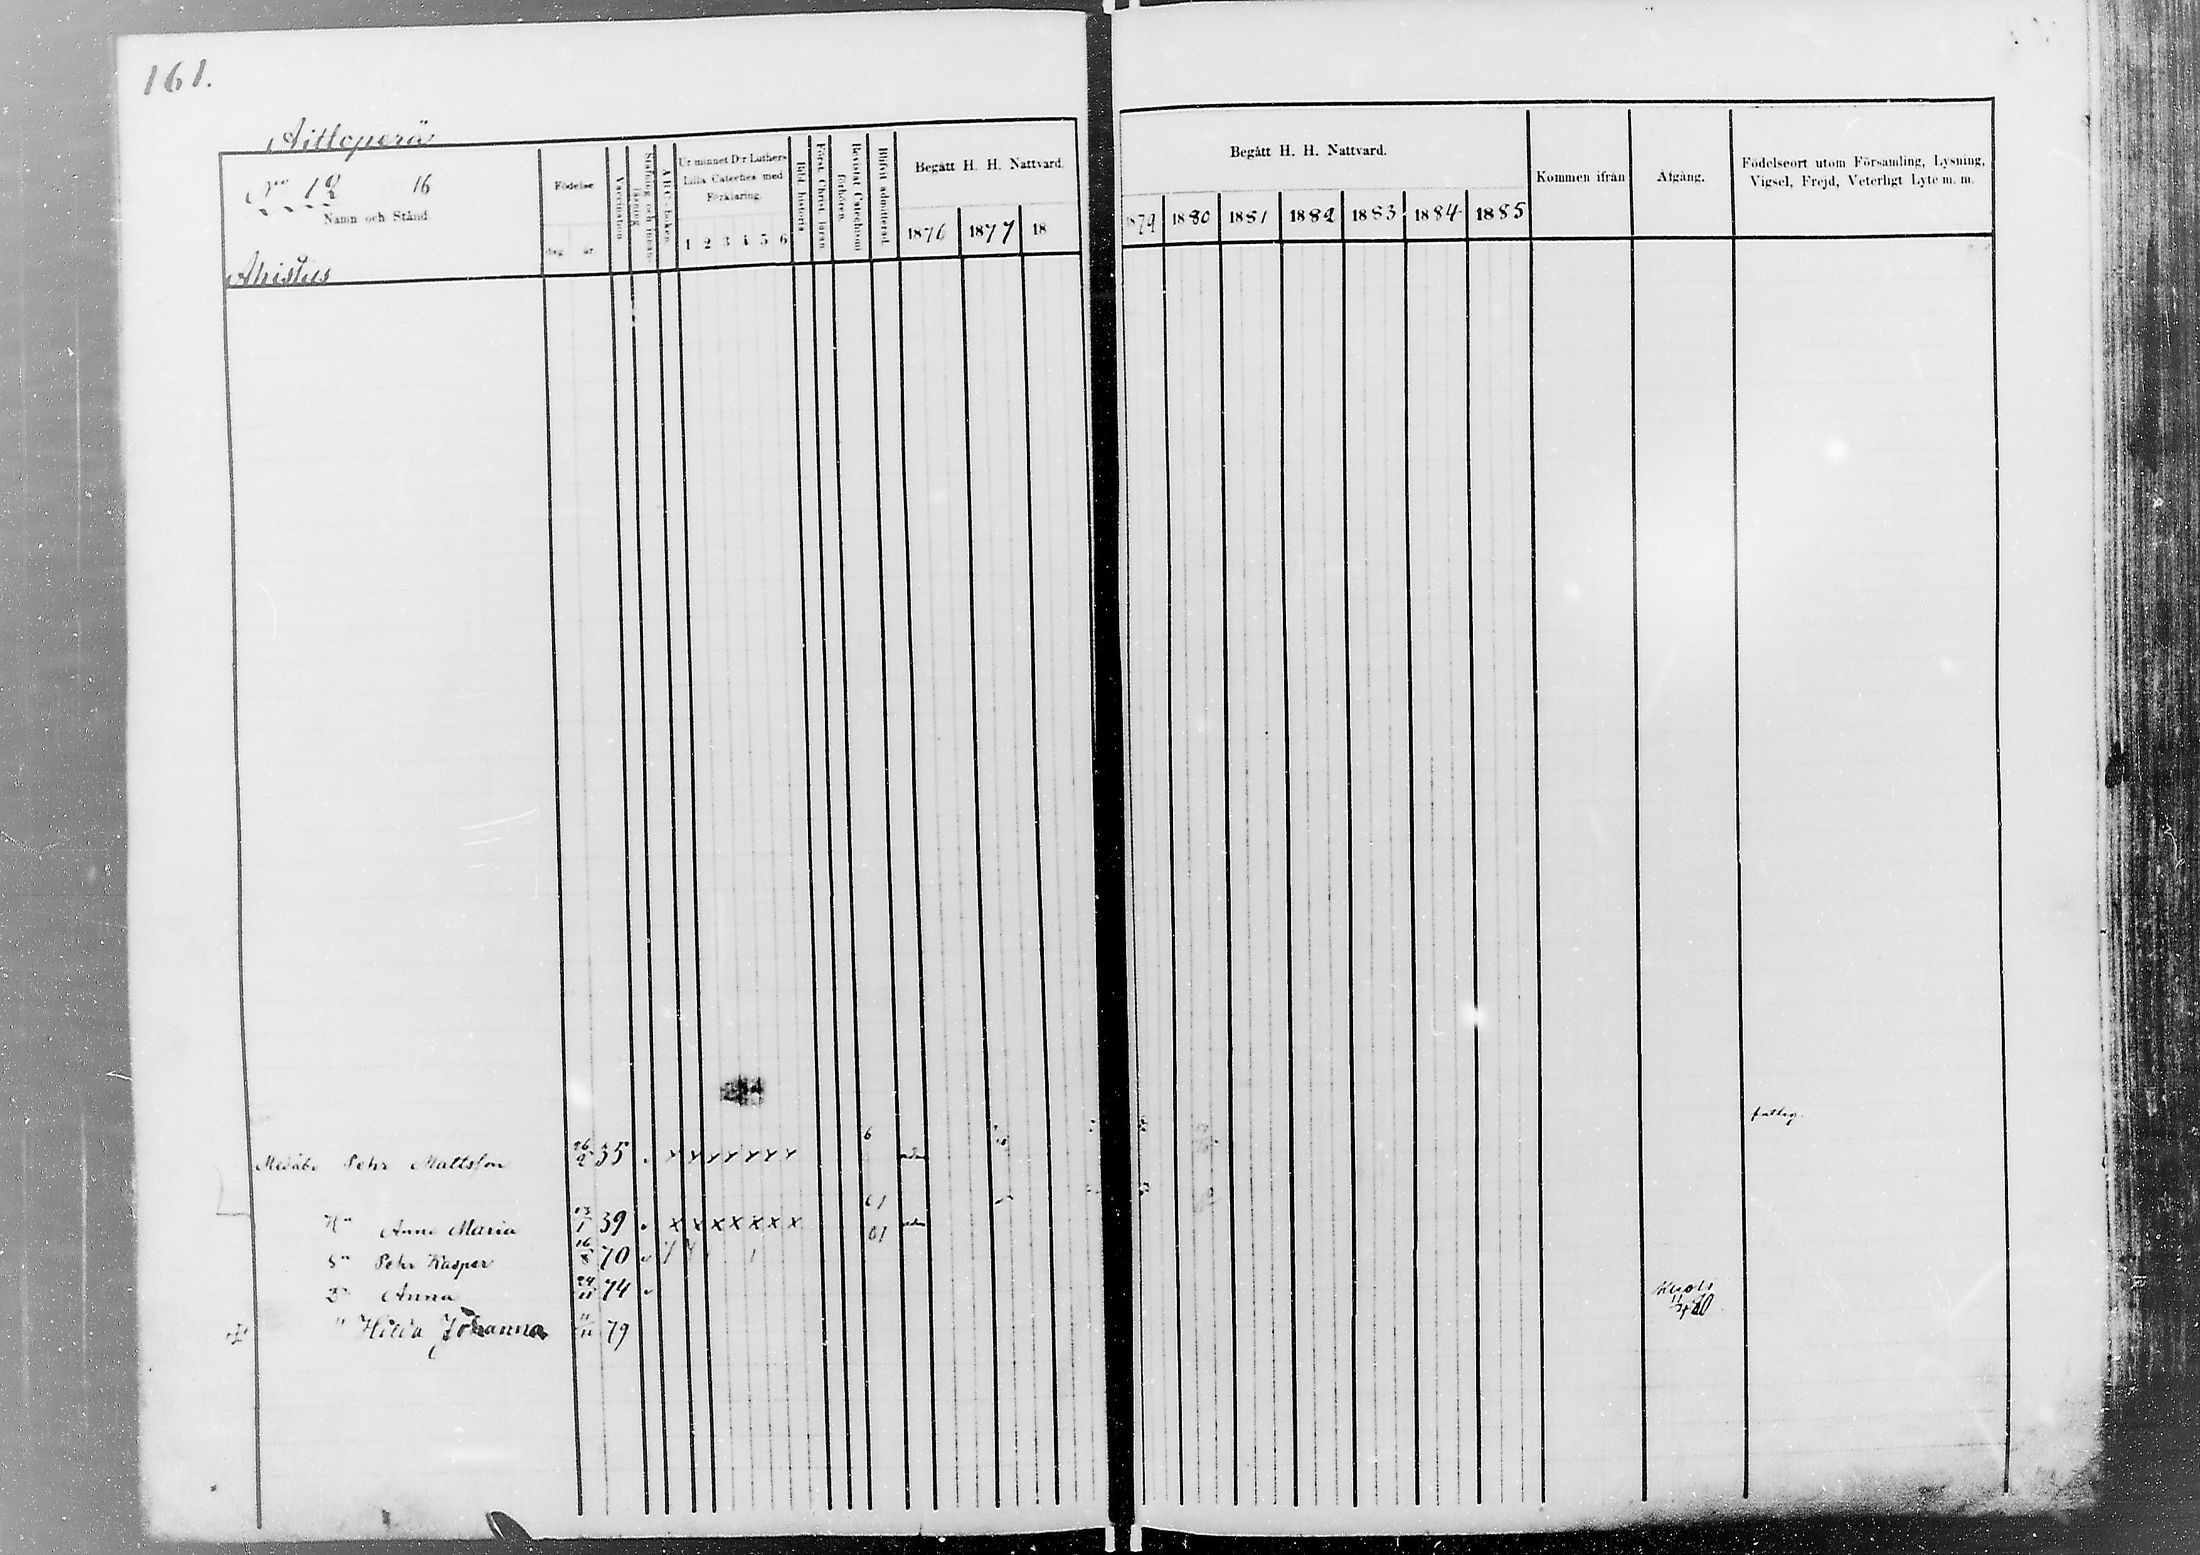 161.
Aittoperä
N:o 12 16
Namn och Stånd
Ahistus
Födelse
dag år
Vaccination.
Stafning och innanläsning
A B C-boken
Ur minnet D:r Luthers Lilla Cateches med Förklaring.
1 2 3 4 5 6
Bibl. historia
Förest. Christ. läran
Bevistat Catechismi förhören.
Blifvit admitterad.
Begått H. H. Nattvard.
1876 1877 18
Begått H. H. Nattvard.
1879 1880 1881 1882 1883 1884 1885
Kommen ifrån
Afgång.
Födelseort utom Församling, Lysning, Vigsel, Frejd, Veterligt Lyte m. m.
fattig.
6
Pehr Mattsson 26/2 35
61
Hu Anna Maria 13/1 39 x x x x x x x 61
Sn Pehr Kasper 16/8 70
Dr Anna 24/11 74
" Hilda Johanna 11/11 79 11/4 80